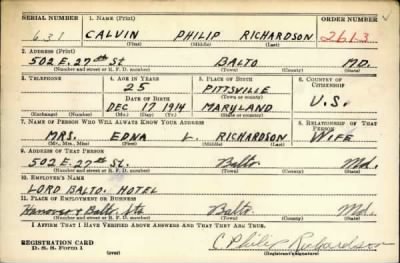 SERIAL NUMBER 1. NAME (Print) ORDER NUMBER
631 CALVIN PHILIP RICHARDSON 2613
(First) (Middle) (Last)
2. ADDRESS (Print)
502 E. 27th St BALTO MD.
(Number and street or R. F. D. number) (Town) (County) (State)
3. TELEPHONE 4. AGE IN YEARS 5. PLACE OF BIRTH 6. COUNTRY OF CITIZENSHIP
25 PITTSVILLE
DATE OF BIRTH (Town or county)
DEC 17 1914 MARYLAND U.S.
(Exchange) (Number) (Mo.) (Day) (Yr.) (State or country)
7. NAME OF PERSON WHO WILL ALWAYS KNOW YOUR ADDRESS 8. RELATIONSHIP OF THAT PERSON
MRS. EDNA L. RICHARDSON WIFE
(Mr., Mrs., Miss) (First) (Middle) (Last)
9. ADDRESS OF THAT PERSON
502 E. 27th St. Balto. Md.
(Number and street or R. F. D. number) (Town) (County) (State)
10. EMPLOYER'S NAME
LORD BALTO. HOTEL
11. PLACE OF EMPLOYMENT OR BUSINESS
Hanover & Balto. Sts Balto. Md.
(Number and street or R. F. D. number) (Town) (County) (State)
I AFFIRM THAT I HAVE VERIFIED ABOVE ANSWERS AND THAT THEY ARE TRUE.
REGISTRATION CARD
D. S. S. Form 1 (over) C Philip Richardson
(Registrant's signature)